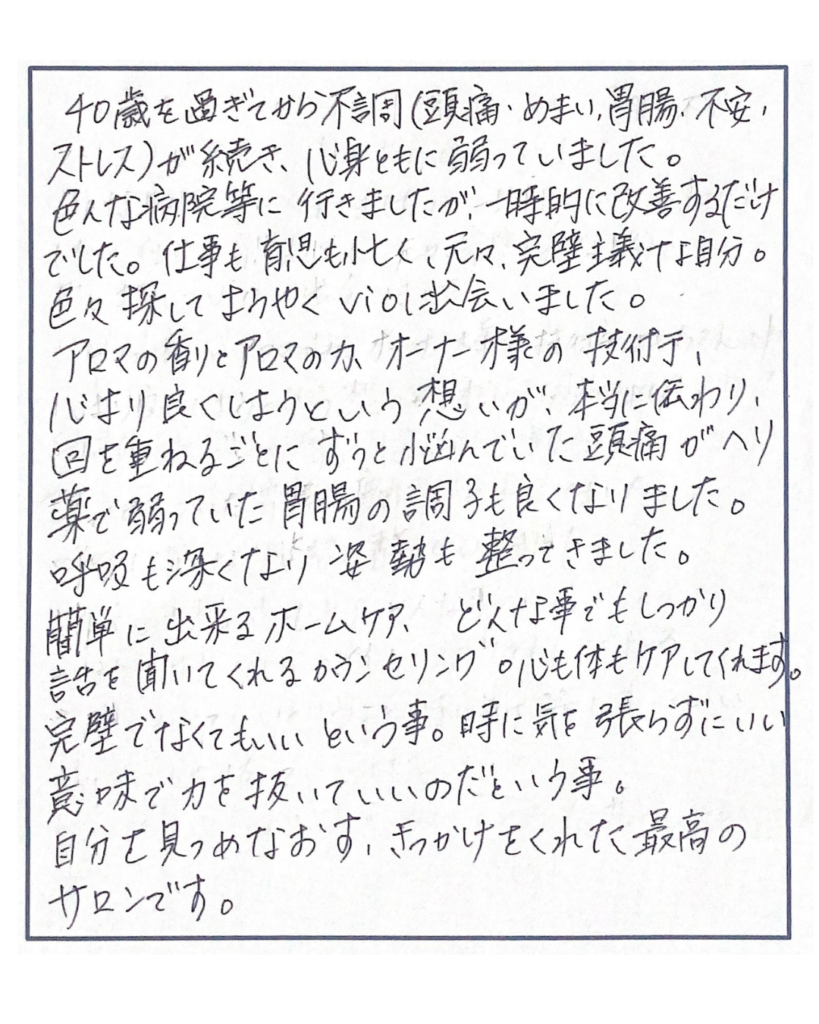 40歳を過ぎてから不調(頭痛・めまい,胃腸・不安,
ストレス)が続き、心身ともに弱っていました。
色んな病院等に行きましたが、一時的に改善するだけ
でした。仕事も育児も忙しく、元々、完璧主義な自分。
色々探してようやくviolに出会いました。
アロマの香りとアロマの力、オーナー様の技術、
心より良くしようという想いが、本当に伝わり、
回を重ねるごとにずっと悩んでいた頭痛がヘリ
薬で弱っていた胃腸の調子も良くなりました。
呼吸も深くなり姿勢も整ってきました。
簡単に出来るホームケア、どんな事でもしっかり
話を聞いてくれるカウンセリング。心も体もケアしてくれます。
完璧でなくてもいいという事。時に気を張らずにいい
意味で力を抜いていいのだという事。
自分を見つめなおす、きっかけをくれた最高の
サロンです。